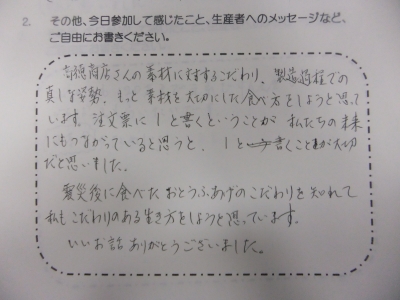 2. その他、今日参加して感じたこと、生産者へのメッセージなど、
ご自由にお書きください。
高橋商店さんの素材に対するこだわり、製造過程での
真しな姿勢、もっと素材を大切にした食べ方をしようと思って
います。注文票に1と書くということが 私たちの未来
にもつながっていると思うと、1と書くことが大切
だと思いました。
震災後に食べたおとうふあげのこだわりを知れて
私もこだわりのある生き方をしようと思っています。
いいお話ありがとうございました。